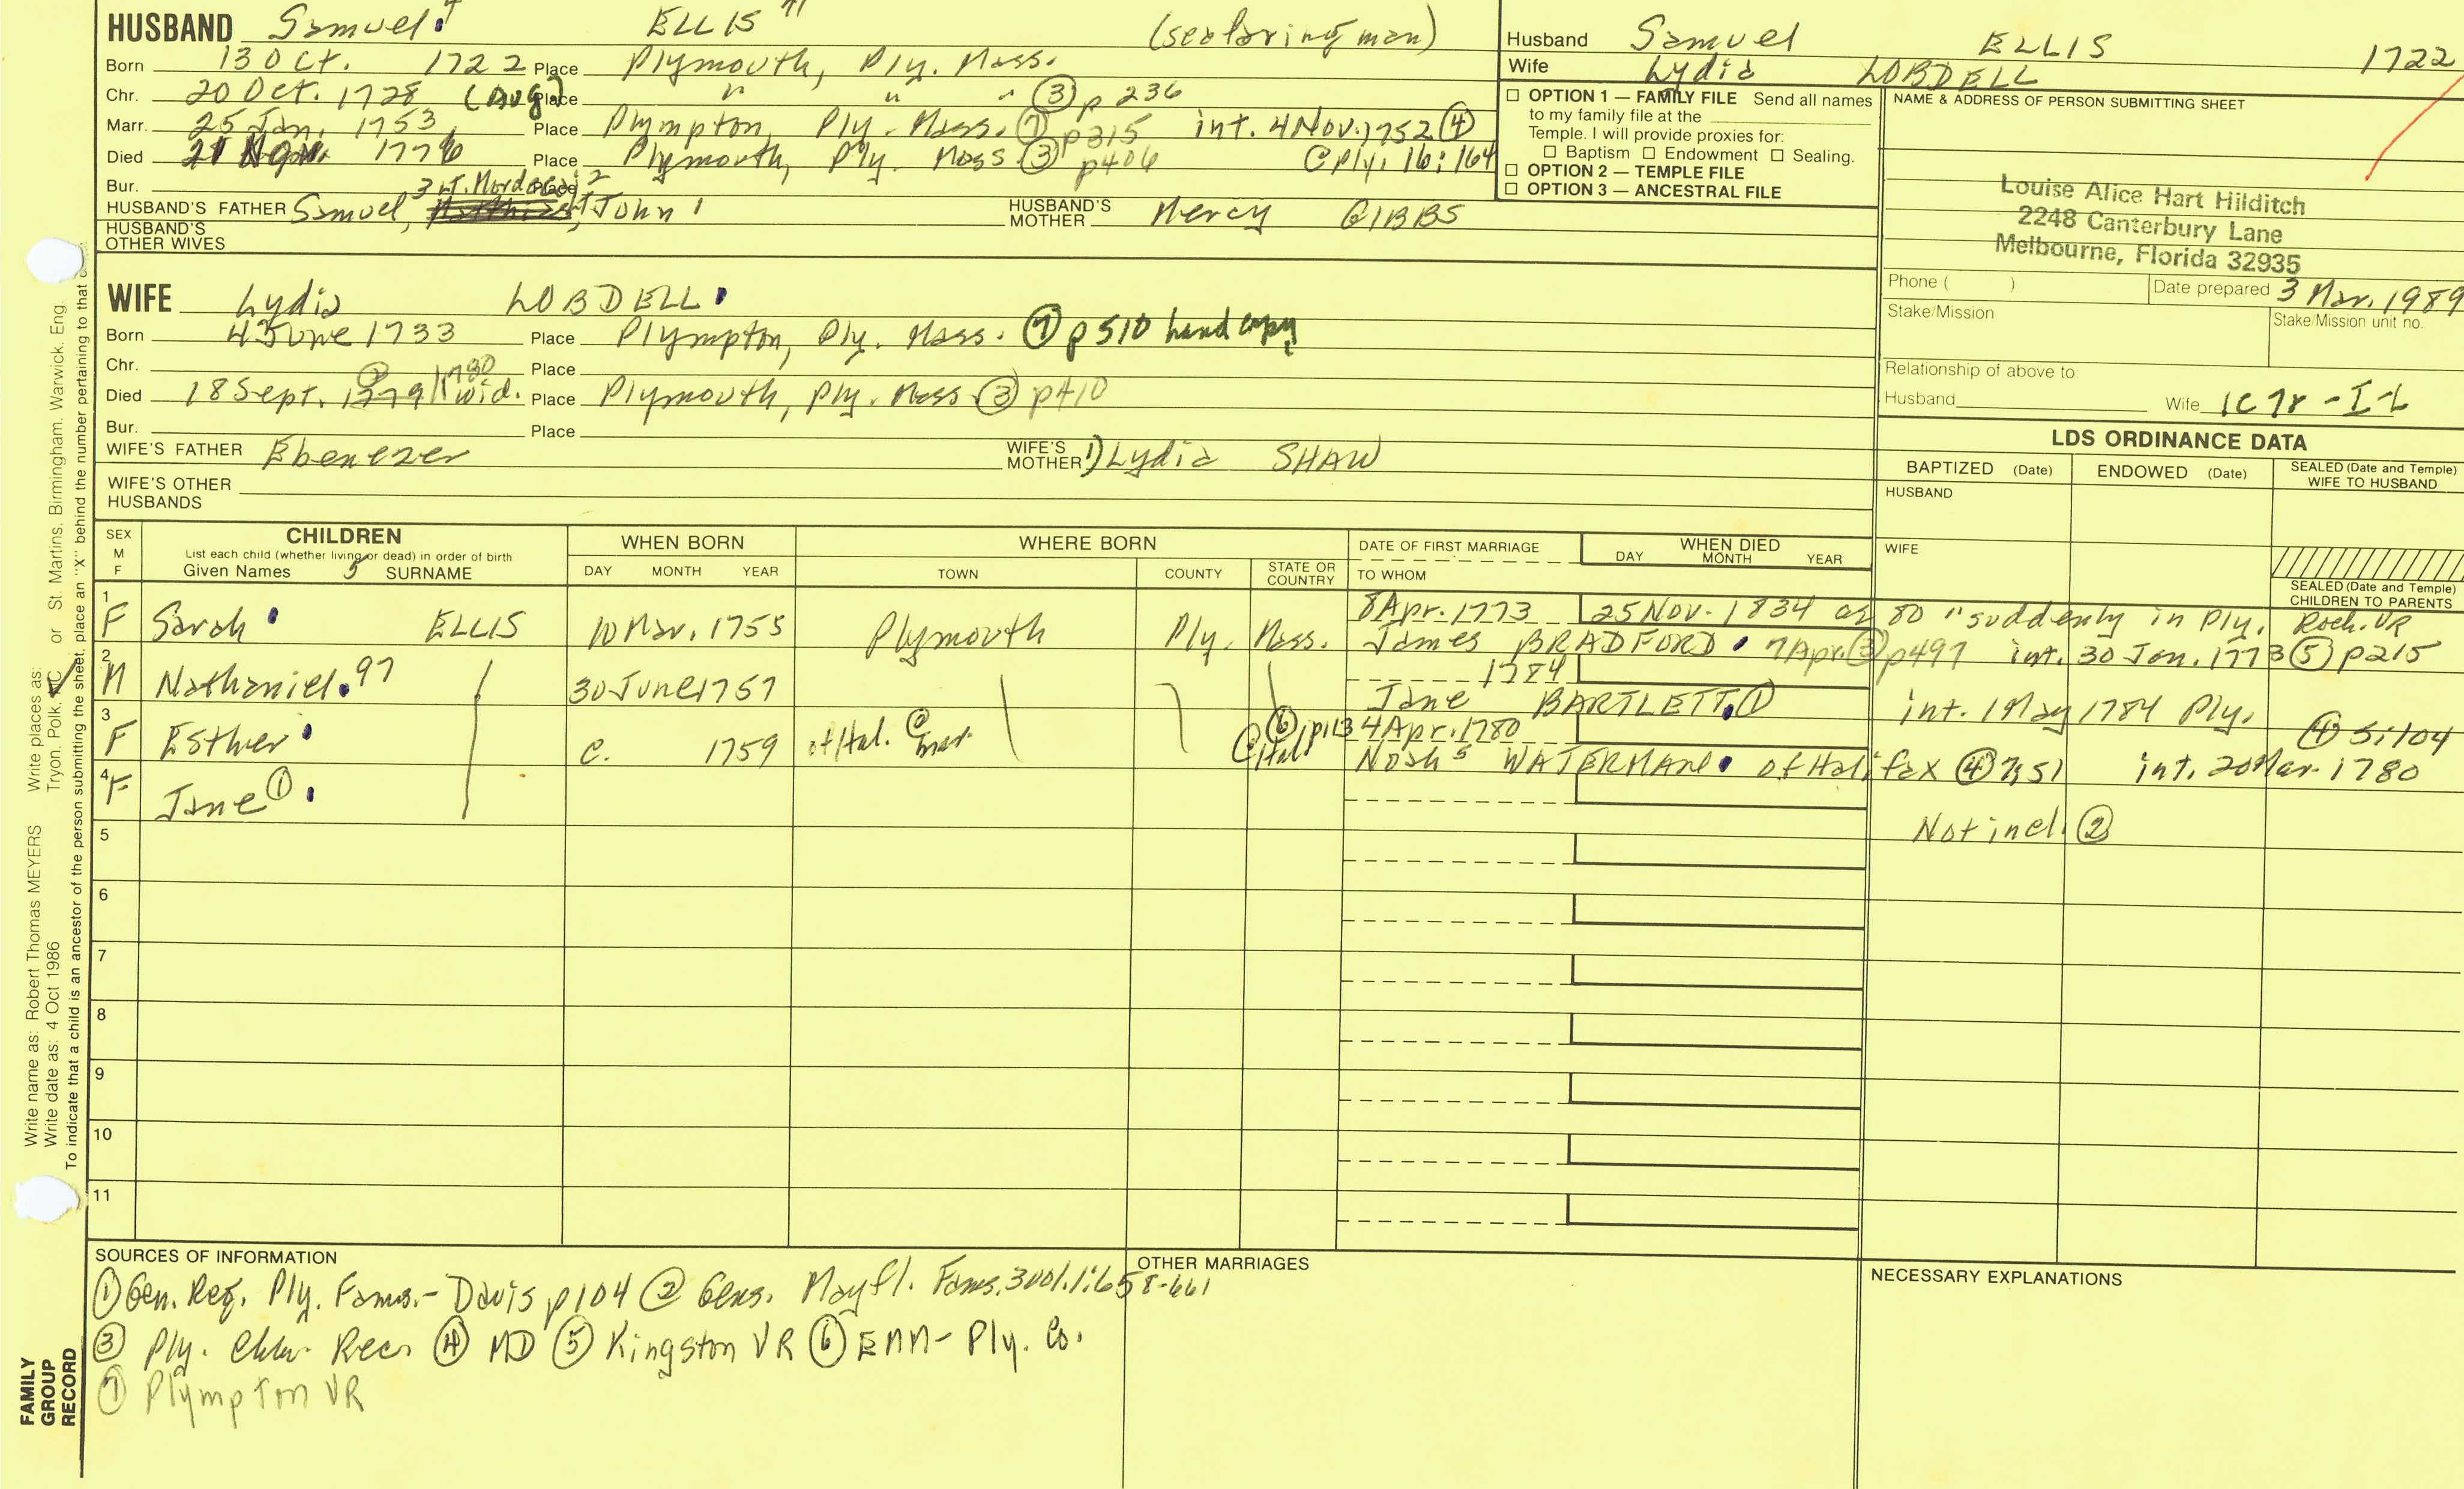 HUSBAND Samuel ELLIS (seafaring man)
Born 13 Oct. 1722 Place Plymouth, Ply. Mass.
Chr. 20 Oct. 1728 (Aug) Place " " " ③ p 236
Marr. 25 Jan. 1753 Place Plympton, Ply. Mass. ⑦ p315 int. 4 Nov. 1752 ④
Died 21 1776 Place Plymouth, Ply. Mass ③ p406 @Ply. 16:164
Bur. Place
HUSBAND'S FATHER Samuel, 3 Lt. Mordecai 2 John 1 HUSBAND'S MOTHER Mercy GIBBS
HUSBAND'S OTHER WIVES
WIFE Lydia LOBDELL
Born 4 June 1733 Place Plympton, Ply. Mass. ⑦ p 510 hand copy
Chr. Place
Died 18 Sept. 1779 1780 wid. Place Plymouth, Ply. Mass ③ p410
Bur. Place
WIFE'S FATHER Ebenezer WIFE'S MOTHER 1) Lydia SHAW
WIFE'S OTHER HUSBANDS
Husband Samuel ELLIS 1722
Wife Lydia LOBDELL
☐ OPTION 1 — FAMILY FILE Send all names
to my family file at the
Temple. I will provide proxies for:
☐ Baptism ☐ Endowment ☐ Sealing.
☐ OPTION 2 — TEMPLE FILE
☐ OPTION 3 — ANCESTRAL FILE
NAME & ADDRESS OF PERSON SUBMITTING SHEET
Louise Alice Hart Hilditch
2248 Canterbury Lane
Melbourne, Florida 32935
Phone ( ) Date prepared 3 Mar. 1989
Stake/Mission Stake/Mission unit no.
Relationship of above to:
Husband Wife 1C7r-IL
LDS ORDINANCE DATA
BAPTIZED (Date) ENDOWED (Date) SEALED (Date and Temple) WIFE TO HUSBAND
HUSBAND
WIFE
SEALED (Date and Temple) CHILDREN TO PARENTS
SEX M F
CHILDREN
List each child (whether living or dead) in order of birth
Given Names 5 SURNAME
WHEN BORN
DAY MONTH YEAR
WHERE BORN
TOWN COUNTY STATE OR COUNTRY
DATE OF FIRST MARRIAGE
TO WHOM
WHEN DIED
DAY MONTH YEAR
1 F Sarah ELLIS 10 Mar. 1755 Plymouth Ply. Mass. 8 Apr. 1773 25 Nov. 1834 ae 80 "suddenly in Ply. Roch. VR
James BRADFORD 7 Apr. ③ p497 int. 30 Jan. 1773 ⑤ p215
2 M Nathaniel 97 30 June 1757 1784
Jane BARTLETT ① int. 1 May 1784 Ply. ④ 5:104
3 F Esther c. 1759 of Hal. @ mar. ⑥ p113 @ Hal 4 Apr. 1780
Noah 5 WATERMAN of Halifax ④ 7:51 int. 20 Mar. 1780
4 F Jane ① Not incl. ②
5
6
7
8
9
10
11
SOURCES OF INFORMATION
① Gen. Reg. Ply. Fams.- Davis p104 ② Gens. Mayfl. Fams. 3 vol. 1:658-661
③ Ply. Chh. Recs ④ MD ⑤ Kingston VR ⑥ EMM- Ply. Co.
⑦ Plympton VR
OTHER MARRIAGES
NECESSARY EXPLANATIONS
Write name as: Robert Thomas MEYERS Write places as: Tryon, Polk, NC or St. Martins, Birmingham, Warwick, Eng
Write date as: 4 Oct 1986
To indicate that a child is an ancestor of the person submitting the sheet, place an "X" behind the number pertaining to that
FAMILY
GROUP
RECORD